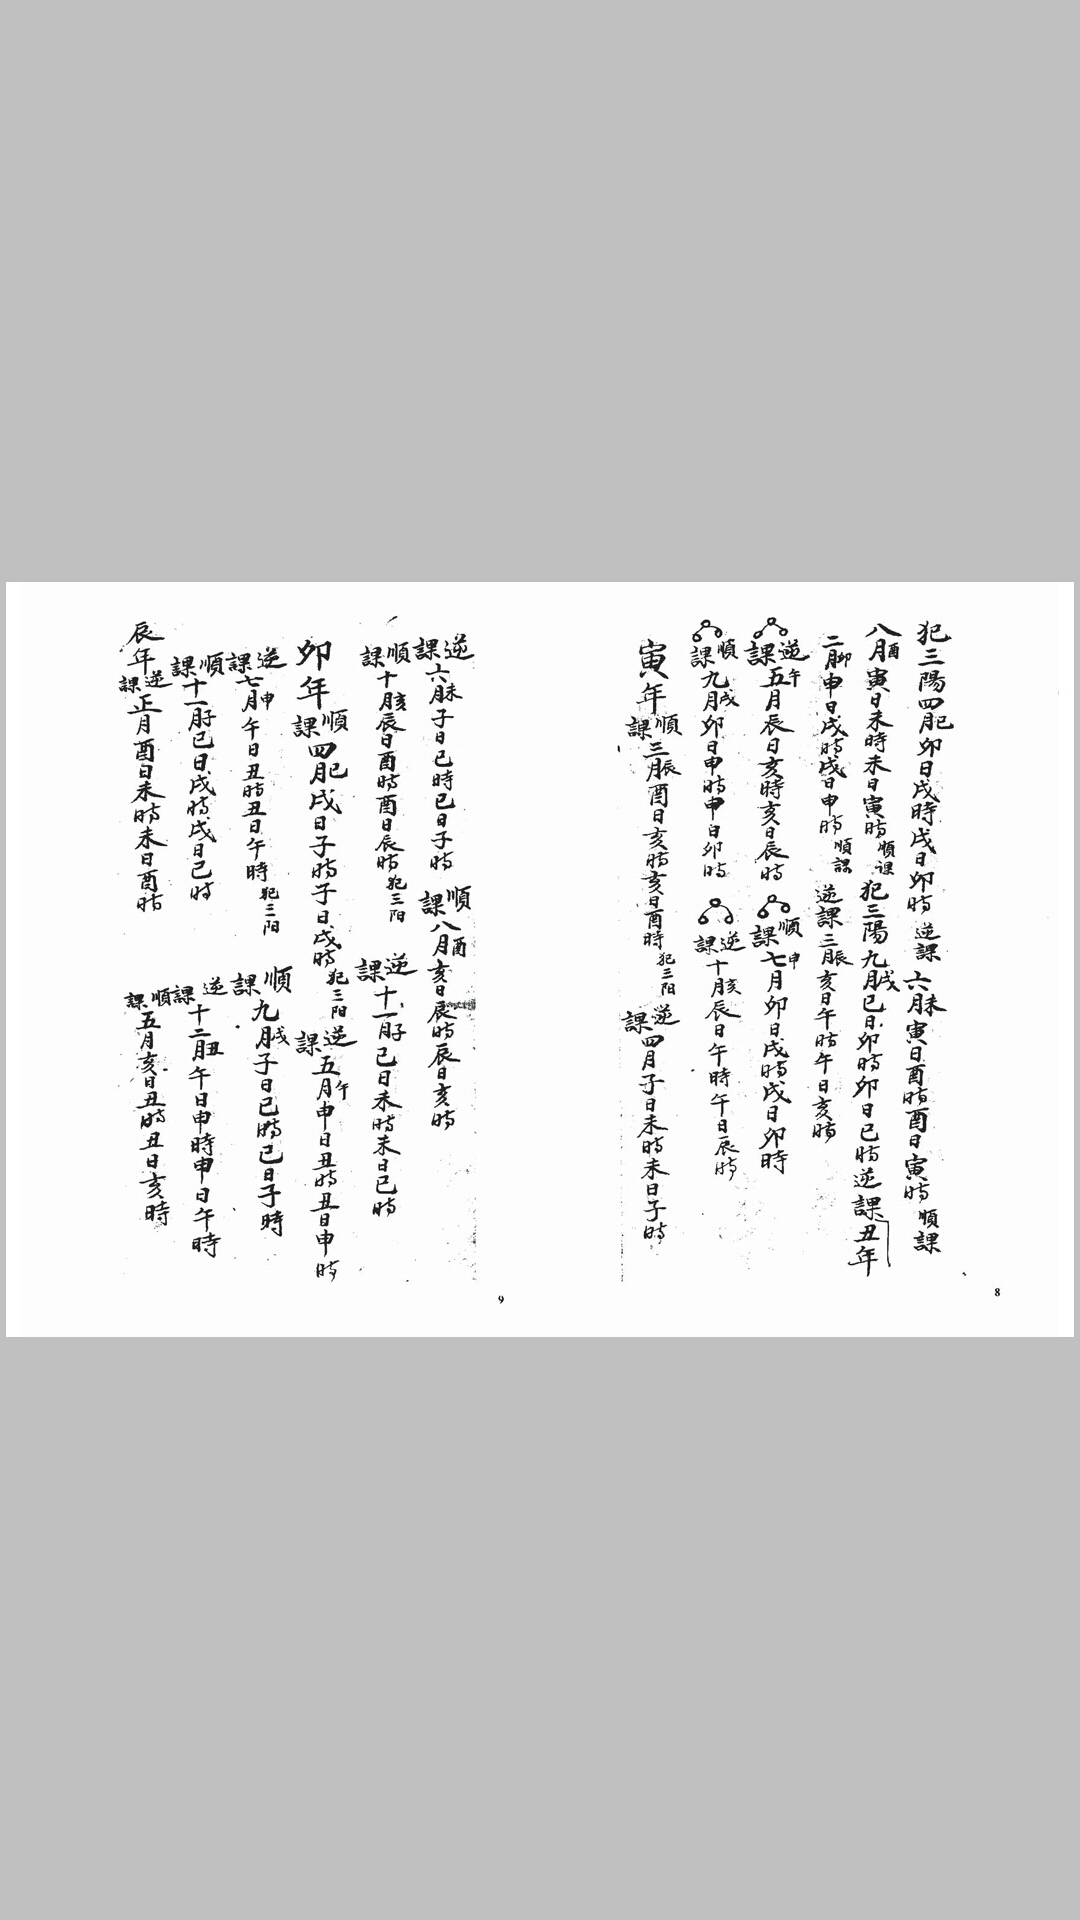 犯三陽四月巳卯日戌時戌日卯時逆課六月未寅日酉時酉日寅時順課
八月酉寅日未時未日寅時順課犯三陽九月戌巳日卯時卯日巳時逆課丑年
二月卯申日戌時戌日申時順課逆課三月辰亥日午時午日亥時
逆課五月午辰日亥時亥日辰時順課七月申卯日戌時戌日卯時
順課九月戌卯日申時申日卯時逆課十月亥辰日午時午日辰時
寅年順課三月辰酉日亥時亥日酉時犯三阳逆課四月子日未時未日子時
8
逆課六月未子日巳時巳日子時順課八月酉亥日辰時辰日亥時
順課十月亥辰日酉時酉日辰時犯三阳逆課十一月子巳日未時未日巳時
卯年順課四月巳戌日子時子日戌時犯三阳逆課五月午申日丑時丑日申時
逆課七月申午日丑時丑日午時犯三阳順課九月戌子日巳時巳日子時
順課十一月子巳日戌時戌日巳时逆課十二月丑午日申時申日午時
辰年逆課正月酉日未時未日酉時順課五月亥日丑時丑日亥時
9